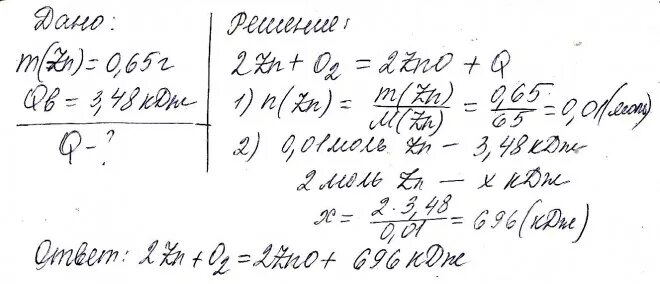 Дано:
m(Zn) = 0,65 г
Qв = 3,48 кДж
Q - ?
Решение:
2Zn + O₂ = 2ZnO + Q
1) n(Zn) = m(Zn)/M(Zn) = 0,65/65 = 0,01 (моль)
2) 0,01 моль Zn — 3,48 кДж
2 моль Zn — x кДж
x = 2·3,48/0,01 = 696 (кДж)
Ответ: 2Zn + O₂ = 2ZnO + 696 кДж